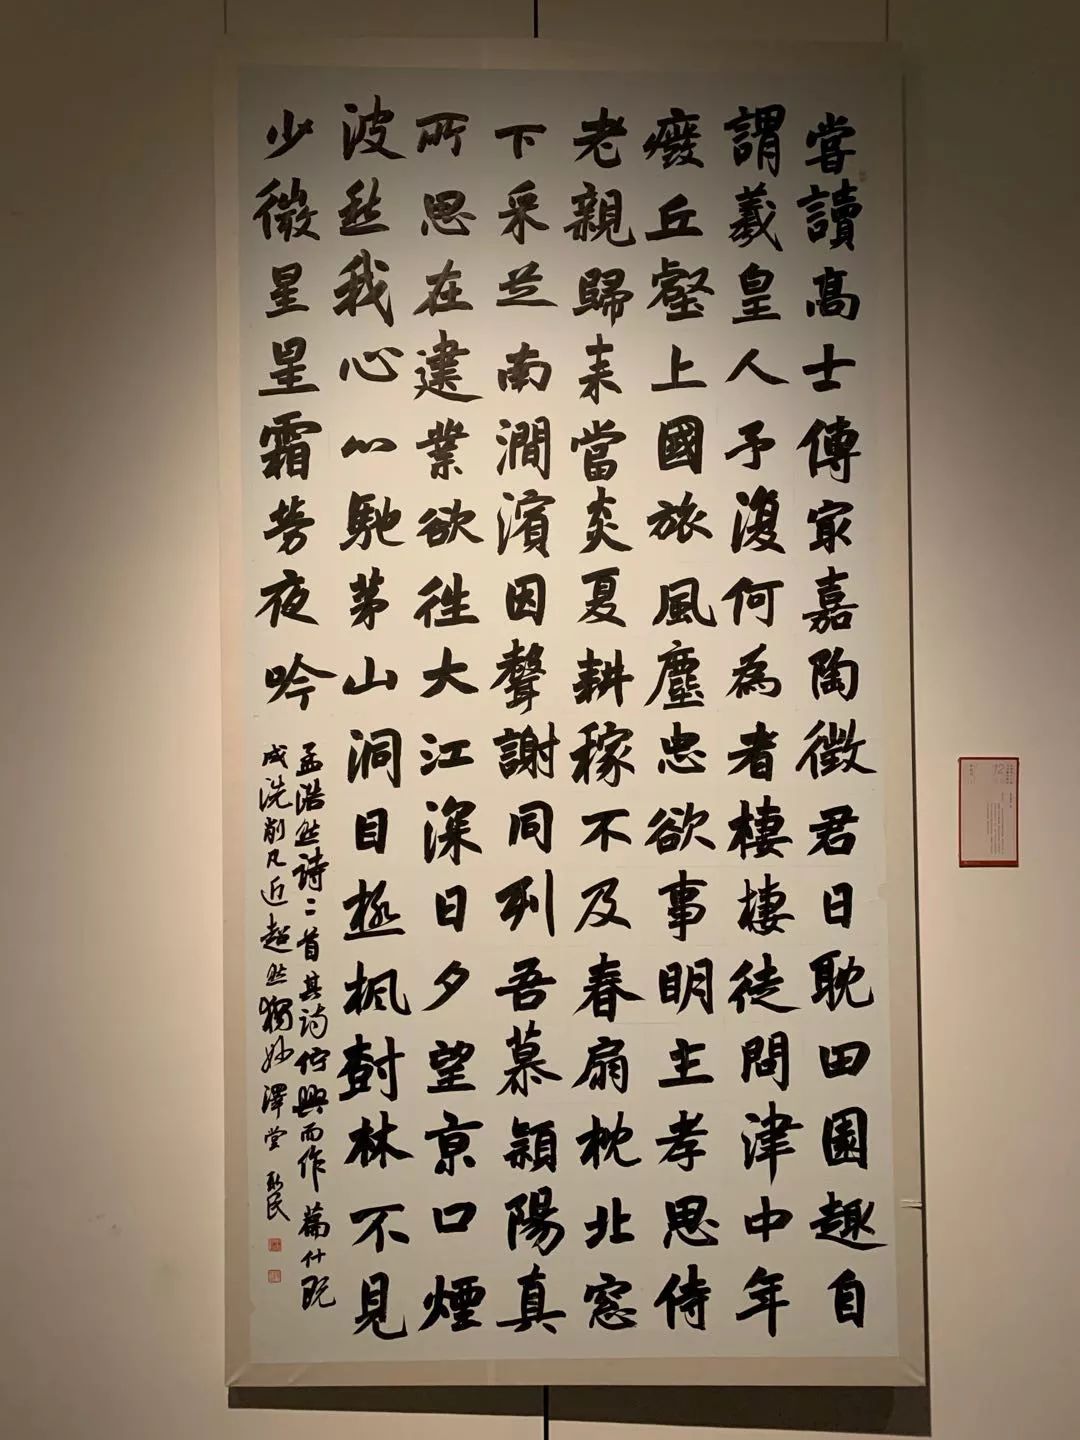 甞讀髙士傳冣嘉陶徵君日耽田園趣自
謂羲皇人予復何為者棲棲徒問津中年
廢丘壑上國旅風塵忠欲事明主孝思侍
老親歸来當炎夏耕稼不及春扇枕北窓
下采芝南澗濱因聲謝同列吾慕潁陽真
所思在建業欲往大江深日夕望京口煙
波愁我心心馳茅山洞目極楓樹林不見
少微星星霜勞夜吟
孟浩然詩二首其詩佇興而作篇什既
成洗削凡近超然獨妙澤堂